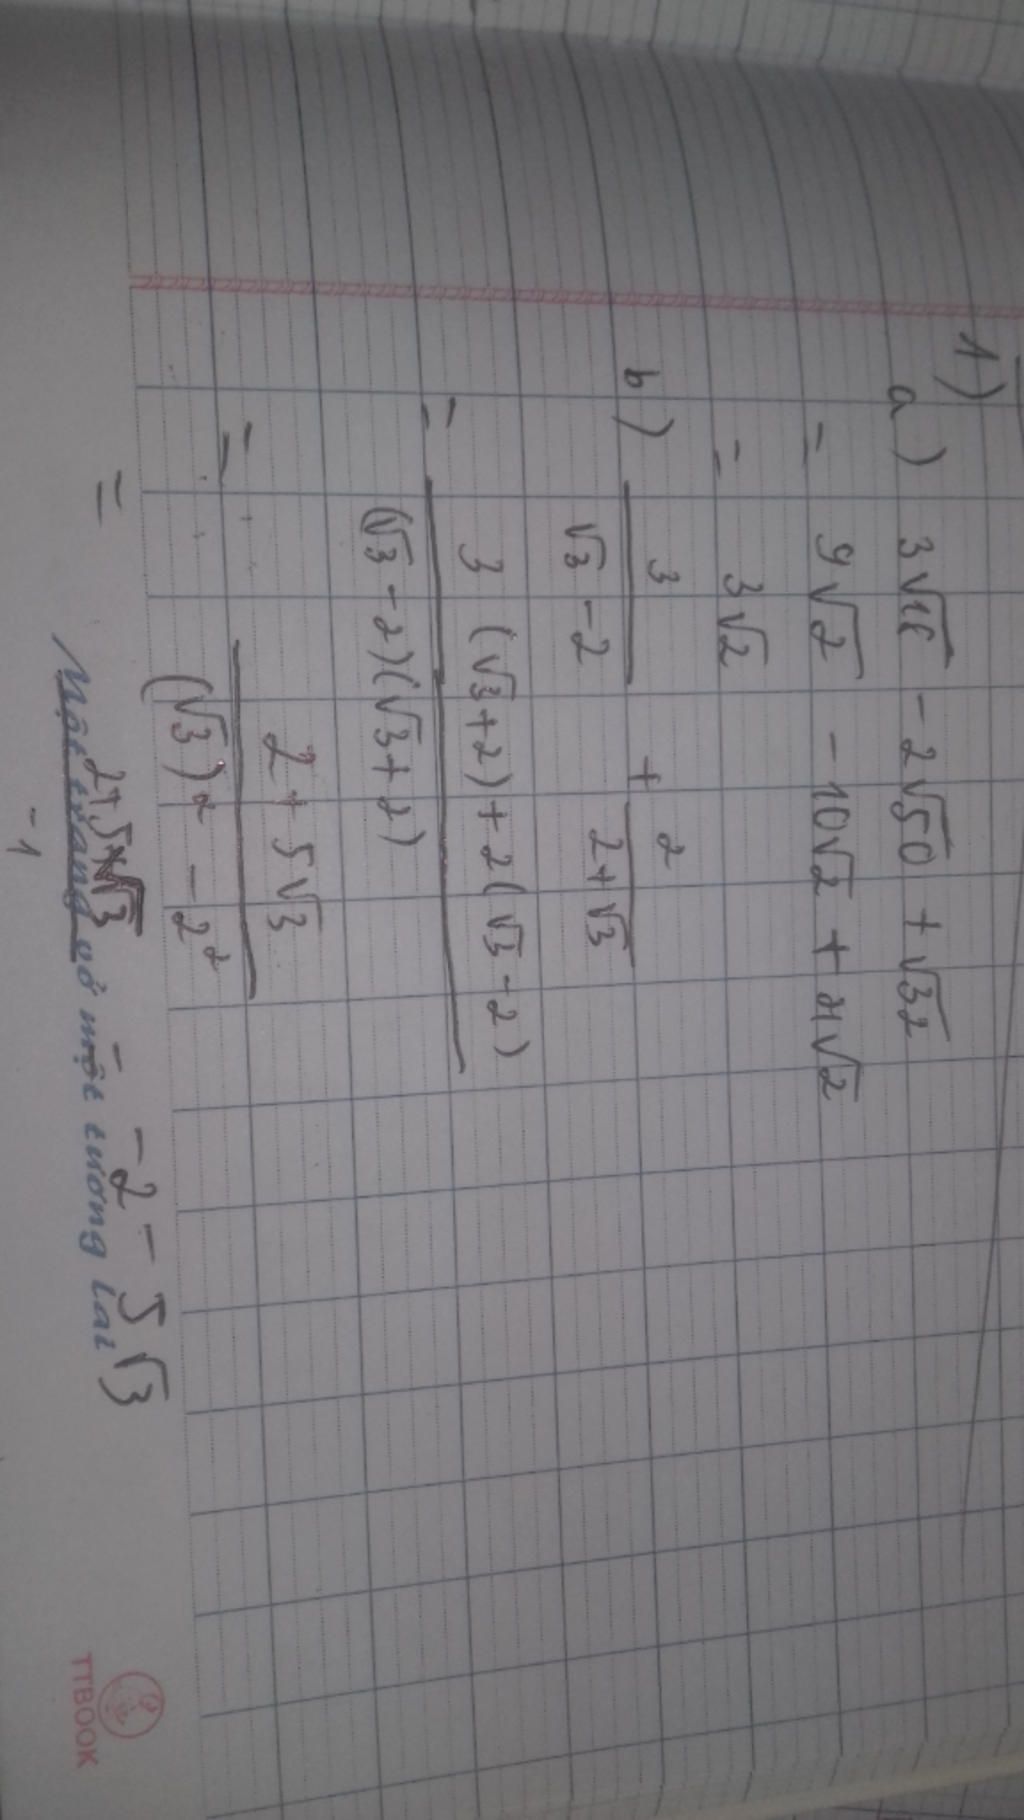 1)
a) 3√18 - 2√50 + √32
= 9√2 - 10√2 + 4√2
= 3√2
b) 3/(√3 - 2) + 2/(2+√3)
= (3(√3+2) + 2(√3-2))/((√3-2)(√3+2))
= (2 + 5√3)/((√3)² - 2²)
= (2+5√3)/(-1) = -2 - 5√3
Một trang vở một tương lai
TTBOOK